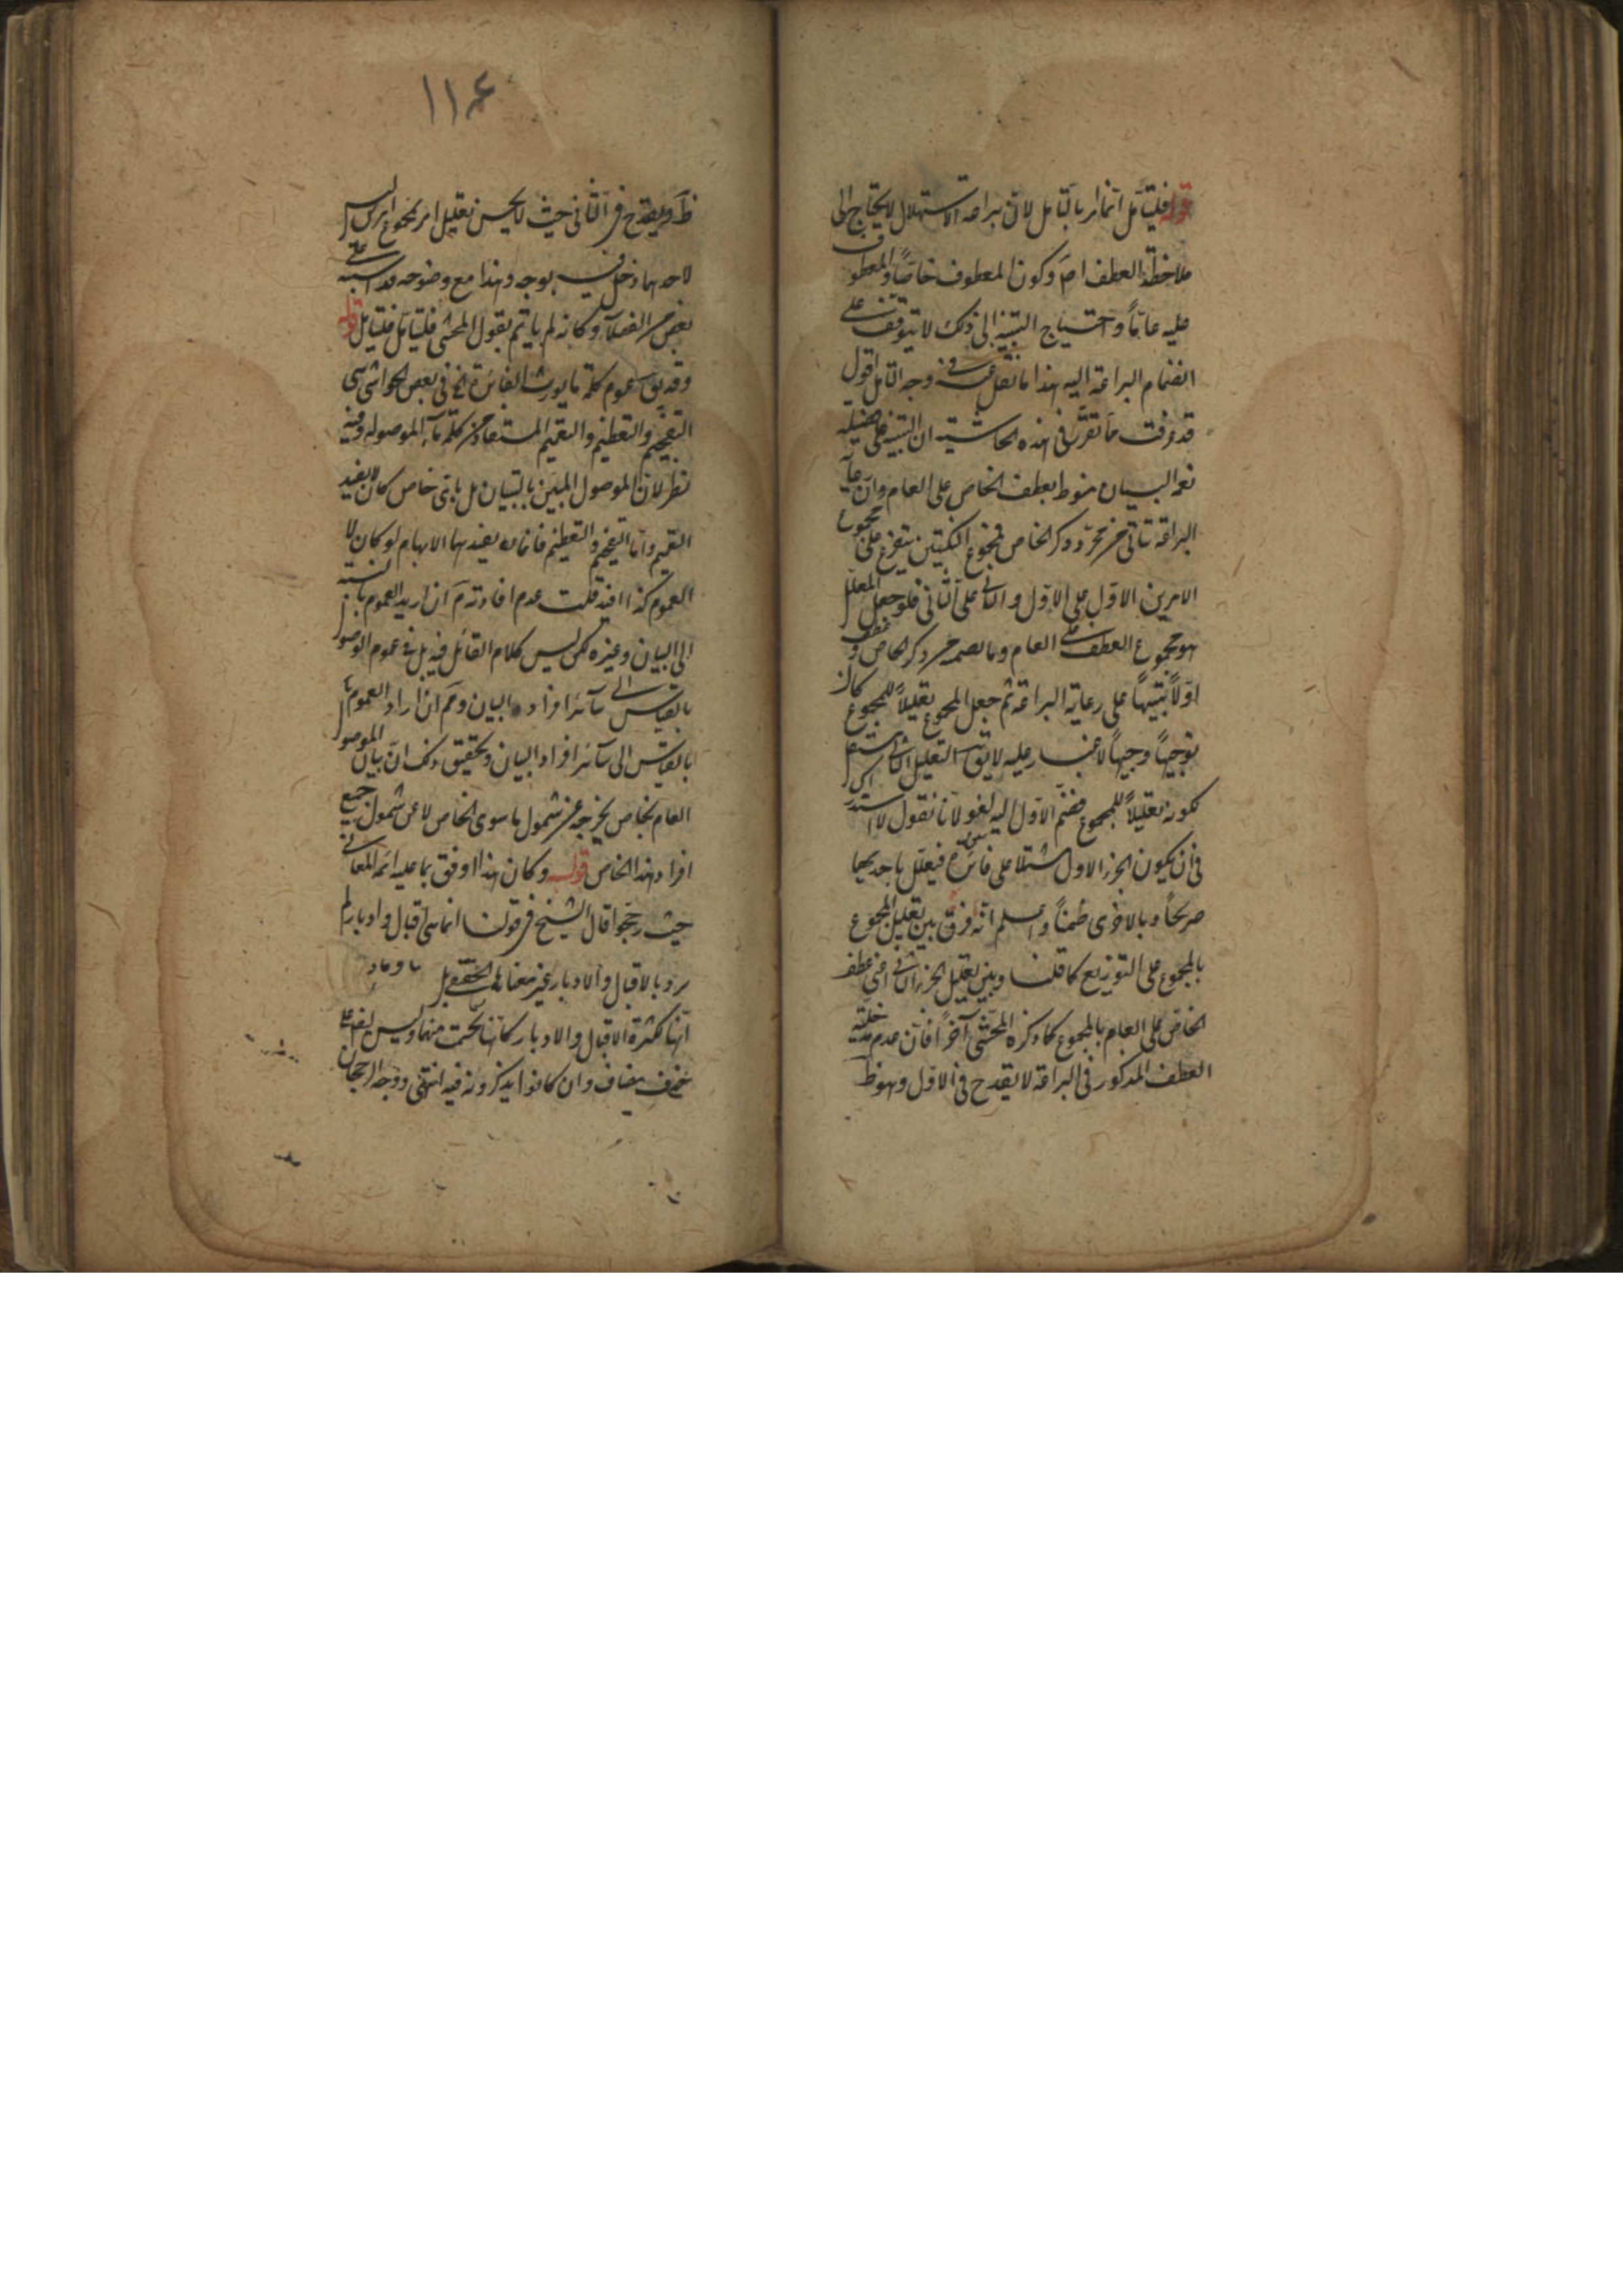 قوله فليتأمل انما امر بالتأمل لان براعة الاستهلال لا يحتاج الى
ملاحظة العطف اصلا وكون المعطوف خاصًا والمعطوف
عليه عامًا واحتياج التنبيه الى ذلك لا يتوقف على
انضمام البراعة اليه هذا ما نقل عنه في وجه التأمل اقول
قد عرفت ما تقرر في هذه الحاشية ان التنبيه على فضيلة
نعمة البيان منوط بعطف الخاص على العام وان رعاية
البراعة تتأتى من مجرد ذكر الخاص فمجموع النكتتين يتفرع على مجموع
الامرين الاول على الاول والثاني على الثاني فلو جعل المعلل
هو مجموع العطف على العام وما تضمنه من ذكر الخاص و
اولًا تنبيهًا على رعاية البراعة ثم جعل المجموع تعليلًا للمجموع كان
توجيهًا وجيهًا لا غبار عليه لا يقال التعليل الثاني
لكونه تعليلًا للمجموع فضم الاول اليه لغو لانا نقول لا استدراك
في ان يكون الجزء الاول مشتملا على فائدتين فيعلل باحديهما
صريحًا وبالاخرى ضمنًا واعلم انه فرق بين تعليل المجموع
بالمجموع على التوزيع كما قلنا وبين تعليل الجزء الثاني اعني عطف
الخاص على العام بالمجموع كما ذكره المحشي آخرًا فان عدم مدخلية
العطف المذكور في البراعة لا يقدح في الاول وهو ظ
ظ ويقدح في الثاني حيث لا يحسن تعليل امر بمجموع امرين ليس
لاحدهما دخل فيه بوجه وهذا مع وضوحه قد اشتبه على
بعض الفضلاء وكانه لم يأتم بقول المحشي فليتأمل فليتأمل قوله
وقد يق عموم كلمة ما يورث الفائدة الخ في بعض الحواشي اي
التفخيم والتعظيم والتعميم المستفاد من كلمة ما الموصولة وفيه
نظر لان الموصول المبين بالبيان بل باي خاص كان لا يفيد
التعميم واما التفخيم والتعظيم فانما يفيدهما الابهام لو كان لا
العموم كذا افيد قلت عدم افادته م ان اريد العموم بالنسبة
الى البيان وغيره لكن ليس كلام القائل فيه بل في عموم الموصول
بالقياس الى سائر افراد البيان وم ان اراد العموم
بالقياس الى سائر افراد البيان وتحقيق ذلك ان بيان الموصول
العام بخاص يخرجه عن شمول ما سوى الخاص لا عن شمول جميع
افراد هذا الخاص قوله وكان هذا اوفق بما عليه ائمة المعاني
حيث رجحوا قال الشيخ في قولنا انما هي اقبال وادبار لم
يرد بالاقبال والادبار غير معناهما الحقيقي بل
انها لكثرة الاقبال والادبار كانها تجسمت منهما وليس ايضا على
حذف مضاف وان كانوا يذكرونه فيه انتهى ووجه الرجحان
١١٤